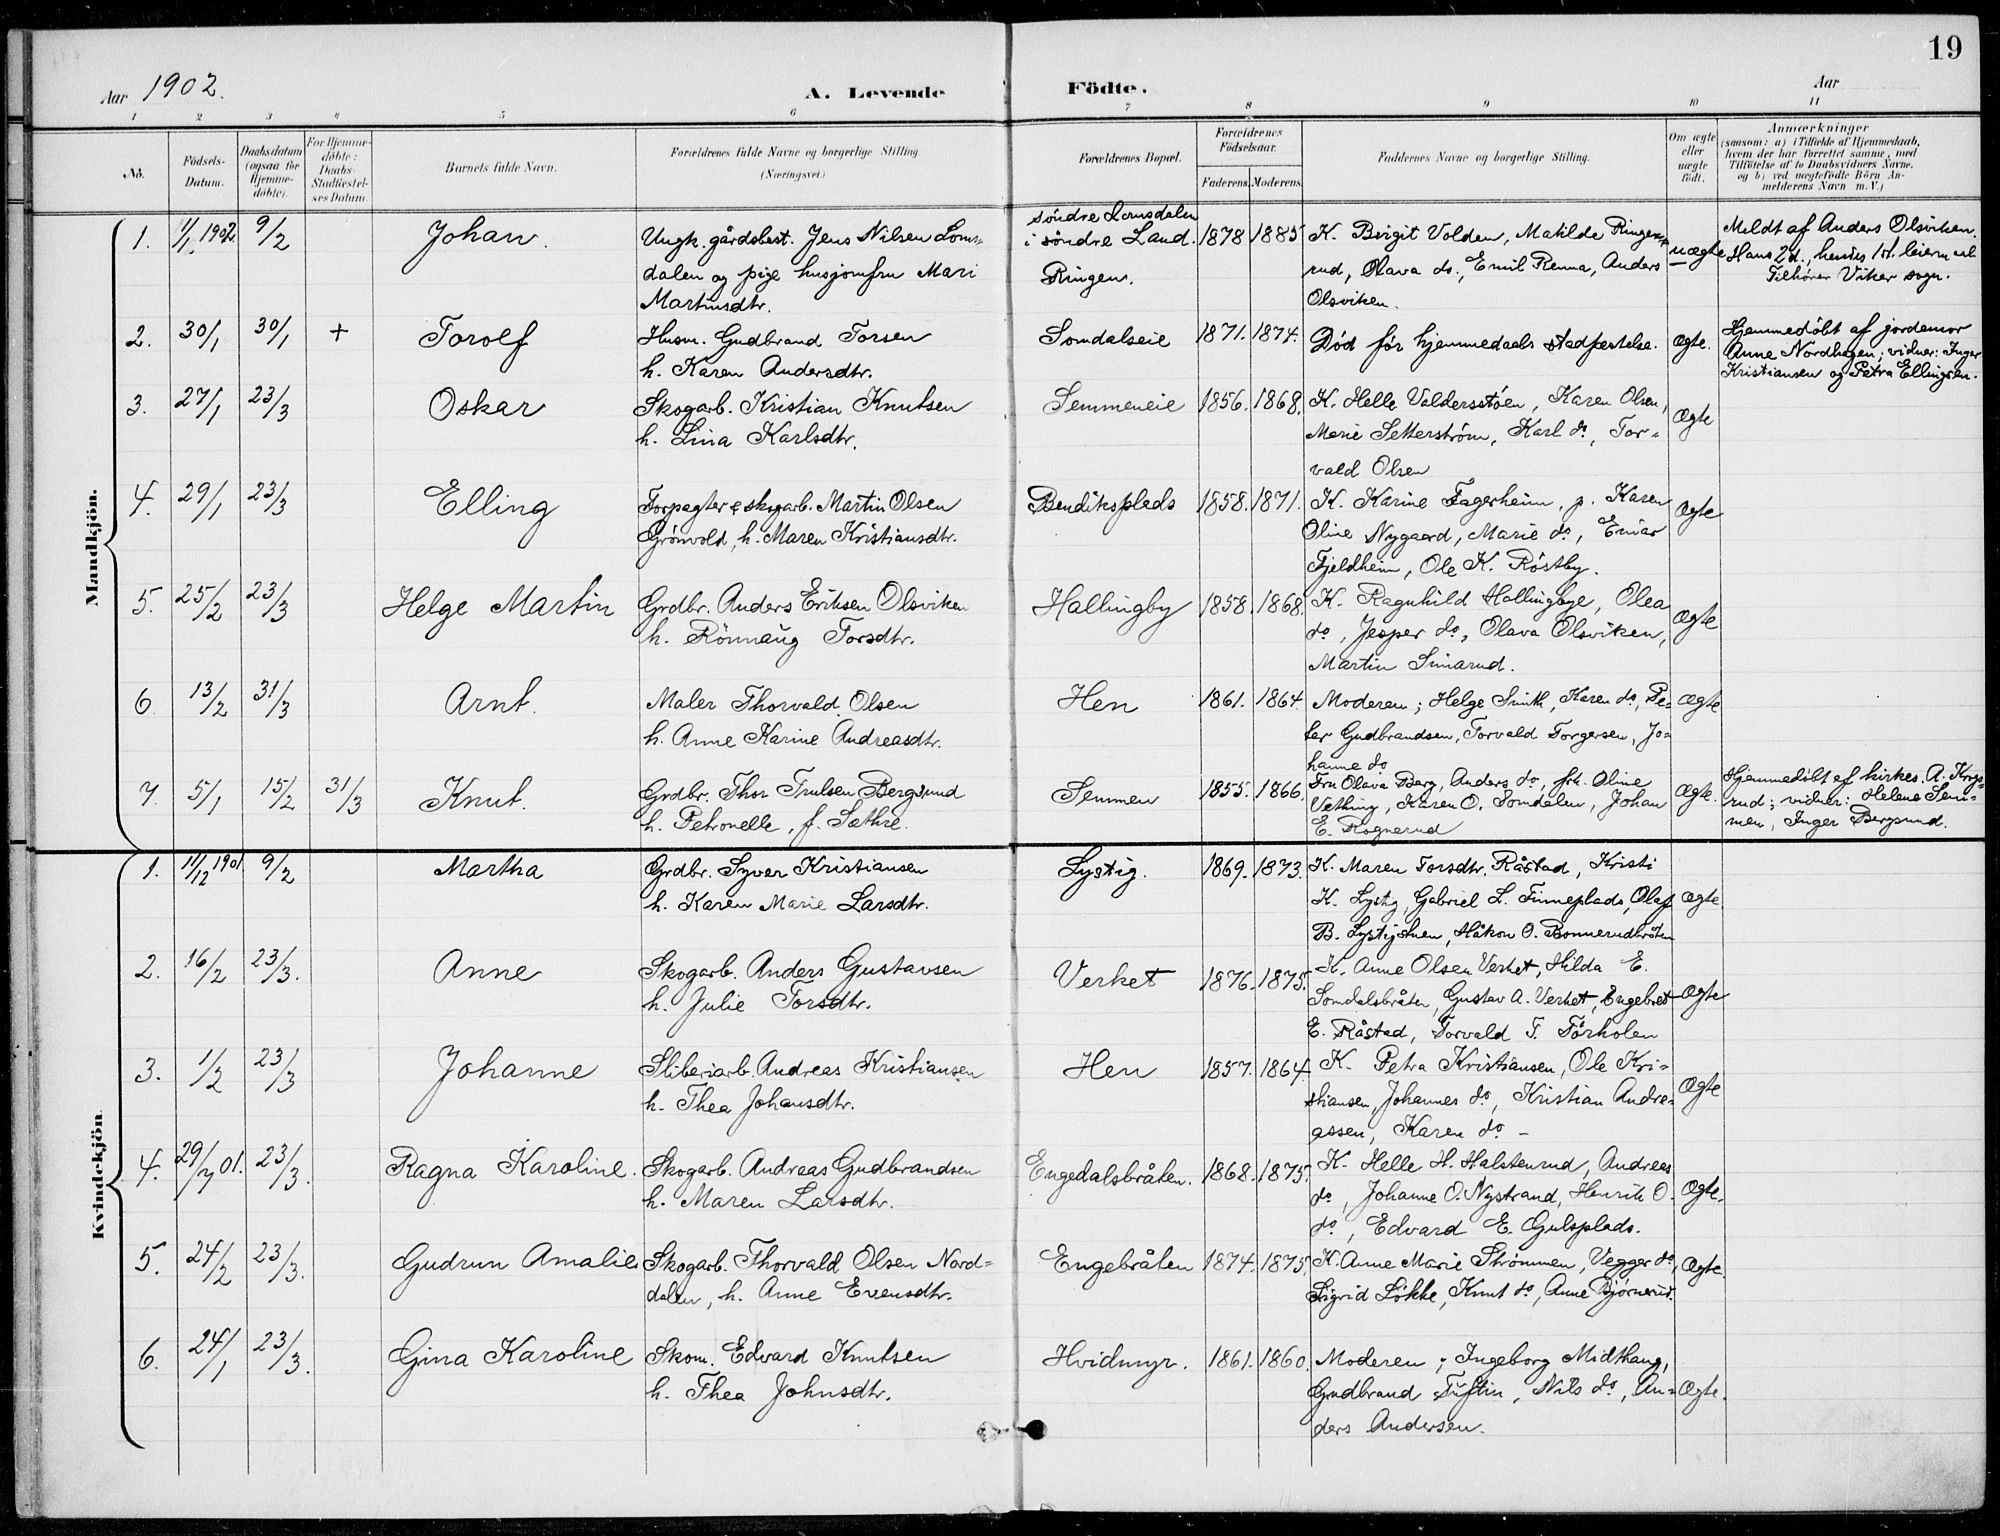 19
Aar 1902.
A. Levende Födte.
Aar
1 2 3 4 5 6 7 8 9 10 11
No.
Födsels-Datum.
Daabsdatum (ogsaa for Hjemme-döbte).
For Hjemme-döbte: Daabs-Stadfæstel-ses Datum.
Barnets fulde Navn.
Forældrenes fulde Navne og borgerlige Stilling (Næringsvei.)
Forældrenes Bopæl.
Forældrenes Födselsaar.
Faderens. Moderens.
Faddernes Navne og borgerlige Stilling.
Om ægte eller uægte födt.
Anmærkninger
(saasom: a) i Tilfælde af Hjemmedaab,
hvem der har forrettet samme, med
Tilföielse af to Daabsvidners Navne.
og b) ved uægtefödte Börn An-
melderens Navn m. V.)
Mandkjön.
1. 1/1. 1902. 9/2 Johan. Ungk. gårdsbest. Jens Nilsen Loms-
dalen og pige husjomfru Mari
Martinsdtr.
søndre Lomsdalen
i søndre Land.
Ringen.
1878 1885
K. Birgit Volden, Matilde Ringe-
rud, Olava do., Emil Renna, Anders
Olsviken.
uægte
Meldt af Anders Olsviken.
Hans 2d., hendes 1st. leierm.
Tilhører Viker sogn.
2. 30/1 30/1 + Torolf Husm. Gudbrand Torsen
h. Karen Andersdtr.
Somdalseie 1871. 1874. Död før hjemmedaabs stadfæstelse. Ægte.
Hjemmedöbt af jordemor
Anne Nordhagen; vidner: Inger
Kristiansen og Petra Ellingsen.
3. 27/1 23/3 Oskar Skogarb. Kristian Knutsen
h. Lina Karlsdtr.
Semmeneie 1856. 1868. K. Helle Valdersstøen, Karen Olsen,
Marie Setterström, Karl do., Tor-
vald Olsen
Ægte
4. 29/1 23/3 Elling Forpagter & skogarb. Martin Olsen
Grönvold, h. Maren Kristiansdtr.
Bendiksplads 1858. 1871. K. Karine Fagerheim, p. Karen
Oline Nygaard, Marie do, Einar
Fjeldheim, Ole K. Röstby.
Ægte
5. 25/2 23/3 Helge Martin Grdbr. Anders Eriksen Olsviken
h. Rönnaug Torsdtr.
Hallingby 1858. 1868. K. Ragnhild Hallingbye, Olea
do, Jesper do, Olava Olsviken,
Martin Simarud.
Ægte
6 13/2 31/3 Arnt. Maler Thorvald Olsen
h. Anne Karine Andreasdtr.
Hen 1861. 1864. Moderen; Helge Smith, Karen do, Pe-
ter Gudbrandsen, Torvald Torgersen, Jo-
hanne do
Ægte
7. 5/1 15/2 31/3 Knut. Grdbr. Thor Trulsen Bergsund
h. Petronelle, f. Sæthre.
Semmen 1855. 1866. Fru Olava Berg, Anders do, frk. Oline
Vething, Karen O. Somdalen, Johan
E. Rognerud
Ægte.
Hjemmedöbt af kirkes. A. Krogs-
rud; vidner: Helene Sem-
men, Inger Bergsund.
Kvindekjön
1. 11/12 1901. 9/2 Martha Grdbr. Syver Kristiansen
h. Karen Marie Larsdtr.
Lystig. 1869. 1873. K. Maren Torsdtr. Råstad, Kristi
K. Lystig, Gabriel L. Finneplads, Olaf
B. Lystigstuen, Håkon O. Bonnerudbråten
Ægte.
2. 16/2 23/3. Anne Skogarb. Anders Gustavsen
h. Julie Torsdtr.
Verket 1876. 1875. K. Anne Olsen Verket, Hilda E.
Somdalsbråten, Gustav A. Verket, Engebret
E. Råstad, Torvald T. Tørholen
Ægte
3. 1/2 23/3 Johanne Sliberiarb. Andreas Kristiansen
h. Thea Johansdtr.
Hen 1857. 1864. K. Petra Kristiansen, Ole Kri-
stiansen, Johannes do, Kristian Andre-
assen, Karen do –
Ægte
4. 29/7 01. 23/3. Ragna Karoline. Skogarb. Andreas Gudbrandsen
h. Maren Larsdtr.
Engedalsbråten. 1868. 1875. K. Helle H. Halstenrud, Andreas
do, Johanne O. Nystrand, Henrik O.
do, Edvard E. Gulsplads.
Ægte.
5. 24/2 23/3. Gudrun Amalie Skogarb. Thorvald Olsen Nord-
dalen, h. Anne Evensdtr.
Engebråten 1874. 1875. K. Anne Marie Strømmen, Vegger do,
Sigrid Løkke, Knut do, Anne Bjørnerud.
Ægte.
6. 24/1 23/3. Gina Karoline Skom. Edvard Knutsen
h. Thea Johnsdtr.
Hvidmyr. 1861. 1860. Moderen; Ingeborg Midthaug,
Gudbrand Tuftin, Nils do, An-
ders Andersen.
Ægte.